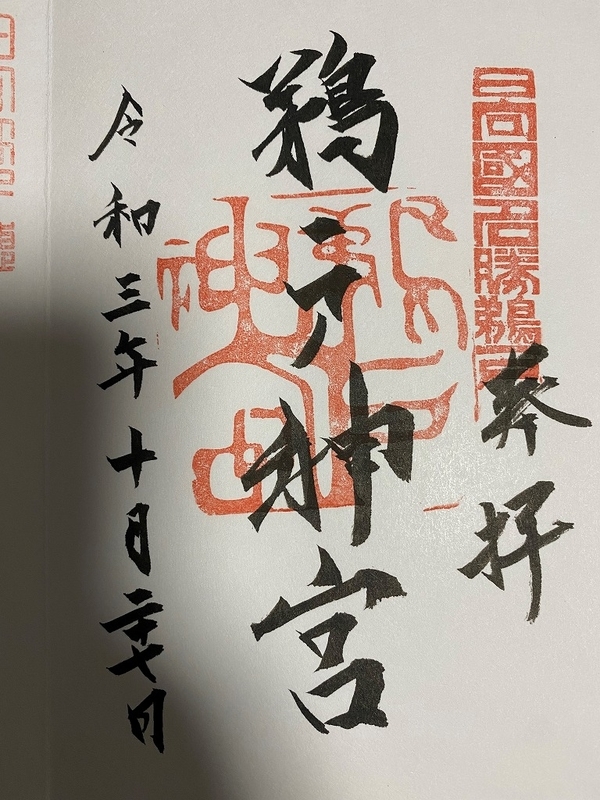 奉拝
日向國名勝鵜戸
鵜戸神宮
令和三年十月二十七日